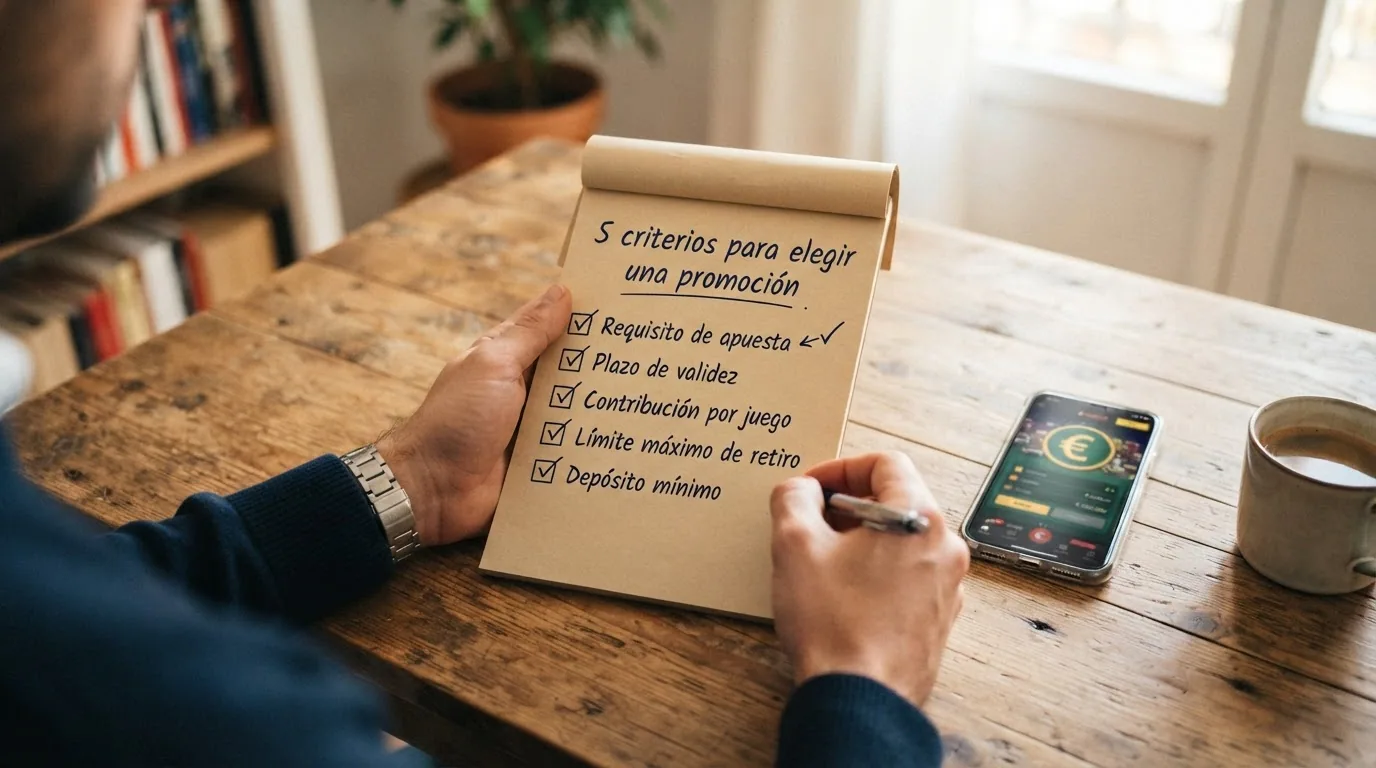 5 criterios para elegir
una promoción
Requisito de apuesta
Plazo de validez
Contribución por juego
Límite máximo de retiro
Depósito mínimo
€